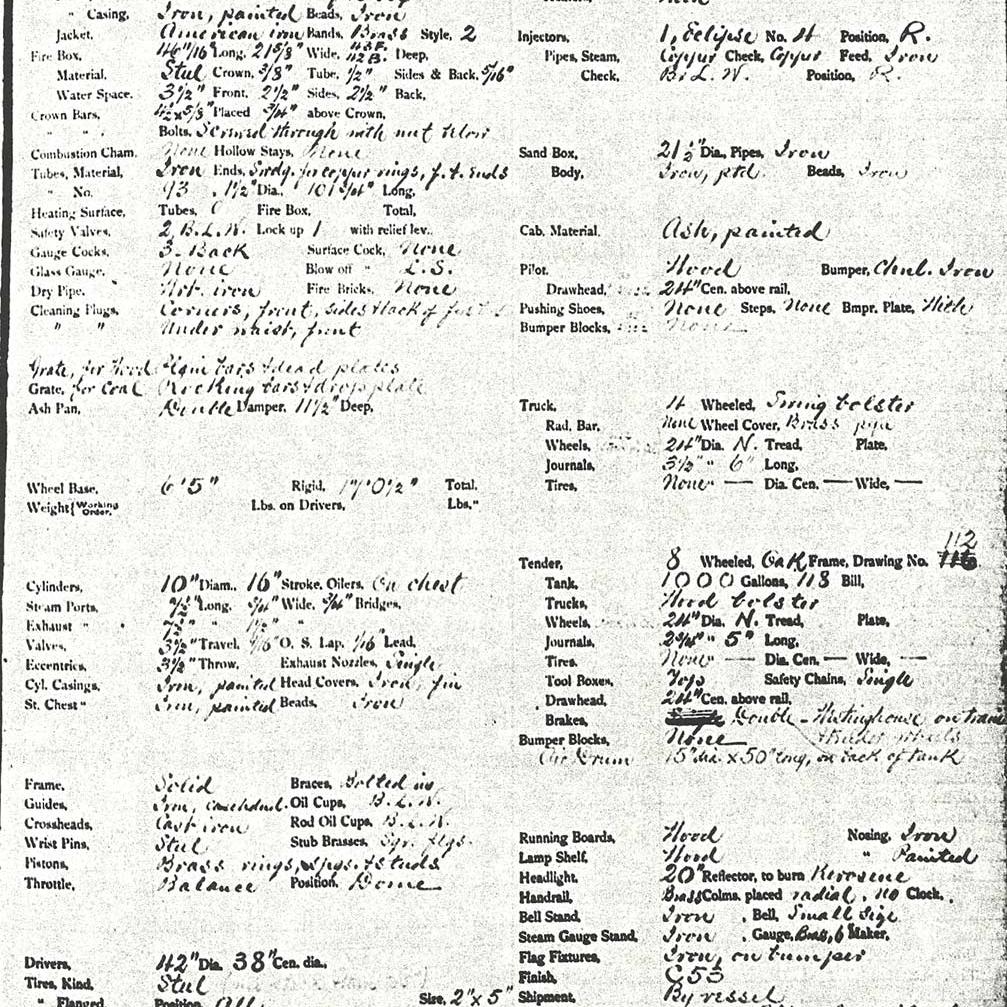 " Casing, Iron, painted Beads, Iron
Jacket, American iron Bands, Brass Style, 2
Fire Box, 46 11/16" Long, 21 5/8" Wide, 43 F. 42 B. Deep,
Material, Steel Crown, 3/8" Tube, 1/2" Sides & Back, 5/16"
Water Space, 3 1/2" Front, 2 1/2" Sides, 2 1/2" Back,
Crown Bars, 4 1/2 x 5/8" Placed 3/4" above Crown,
" " , Bolts, Screwed through with nut below
Combustion Cham. None Hollow Stays, None
Tubes, Material, Iron Ends, Swdg. for copper rings, f.t. Ends
" No. 93 , 1 1/2" Dia., 101 3/4" Long,
Heating Surface, Tubes, Fire Box, Total,
Safety Valves, 2, B.L.W. Lock up 1 with relief lev..
Gauge Cocks, 3. Back Surface Cock, None
Glass Gauge, None Blow off " L.S.
Dry Pipe, Wrt. iron Fire Bricks, None
Cleaning Plugs, Corners, front, sides & back of
" " Under waist, front
Grate, for Wood Plain bars & dead plates
Grate, for Coal Rocking bars & drop plate
Ash Pan, Double Damper, 11 1/2" Deep,
Wheel Base, 6' 5" Rigid, 17' 0 1/2" Total,
Weight { Working Order, Lbs. on Drivers, Lbs."
Cylinders, 10" Diam., 16" Stroke, Oilers, On chest
Steam Ports, 7 1/2" Long, 3/4" Wide, 3/4" Bridges,
Exhaust " 7 1/2" " 1 1/2" "
Valves, 3 1/2" Travel, 7/16" O. S. Lap, 1/16" Lead,
Eccentrics, 3 1/2" Throw, Exhaust Nozzles, Single
Cyl. Casings, Iron, painted Head Covers, Iron, fin
St. Chest " Iron, painted Beads, Iron
Frame, Solid Braces, Bolted in
Guides, Iron, casehdnd. Oil Cups, B.L.W.
Crossheads, Cast iron Rod Oil Cups, B.L.W.
Wrist Pins, Steel Stub Brasses, Sqr. flgs.
Pistons, Brass rings, spgs. & studs
Throttle, Balance Position, Dome
Drivers, 42" Dia. 38" Cen. dia.,
Tires, Kind, Steel
" Flanged Position, All Size, 2" x 5"
Injectors, 1, Eclipse No. 4 Position, R.
Pipes, Steam, Copper Check, Copper Feed, Iron
Check, B.L.W. Position, R.
Sand Box, 21 1/2" Dia., Pipes, Iron
Body, Iron, ptd. Beads, Iron
Cab, Material, Ash, painted
Pilot, Wood Bumper, Chnl. Iron
Drawhead, 24" Cen. above rail,
Pushing Shoes, None Steps, None Bmpr. Plate, With
Bumper Blocks, None
Truck, 4 Wheeled, Swing bolster
Rad. Bar, None Wheel Cover, Brass
Wheels, 24" Dia. N. Tread, Plate,
Journals, 3 1/2" " 6" Long,
Tires, None — Dia. Cen. — Wide, —
112
Tender, 8 Wheeled, Oak Frame, Drawing No.
Tank, 1000 Gallons, 113 Bill,
Trucks, Wood bolster
Wheels, 24" Dia. N. Tread, Plate,
Journals, 2 3/4" " 5" Long,
Tires, None — Dia. Cen. — Wide, —
Tool Boxes, Tops Safety Chains, Single
Drawhead, 24" Cen. above rail,
Brakes, Double - Westinghouse on
Bumper Blocks, None & tender wheels
Air Drum 15" dia. x 50" long, on back of tank
Running Boards, Wood Nosing, Iron
Lamp Shelf, Wood " Painted
Headlight, 20" Reflector, to burn Kerosene
Handrail, Brass Colms. placed radial, no Clock,
Bell Stand, Iron , Bell, Small size
Steam Gauge Stand, Iron , Gauge, Brass, 6 Maker,
Flag Fixtures, Iron, on bumper
Finish, C 53
Shipment, By vessel